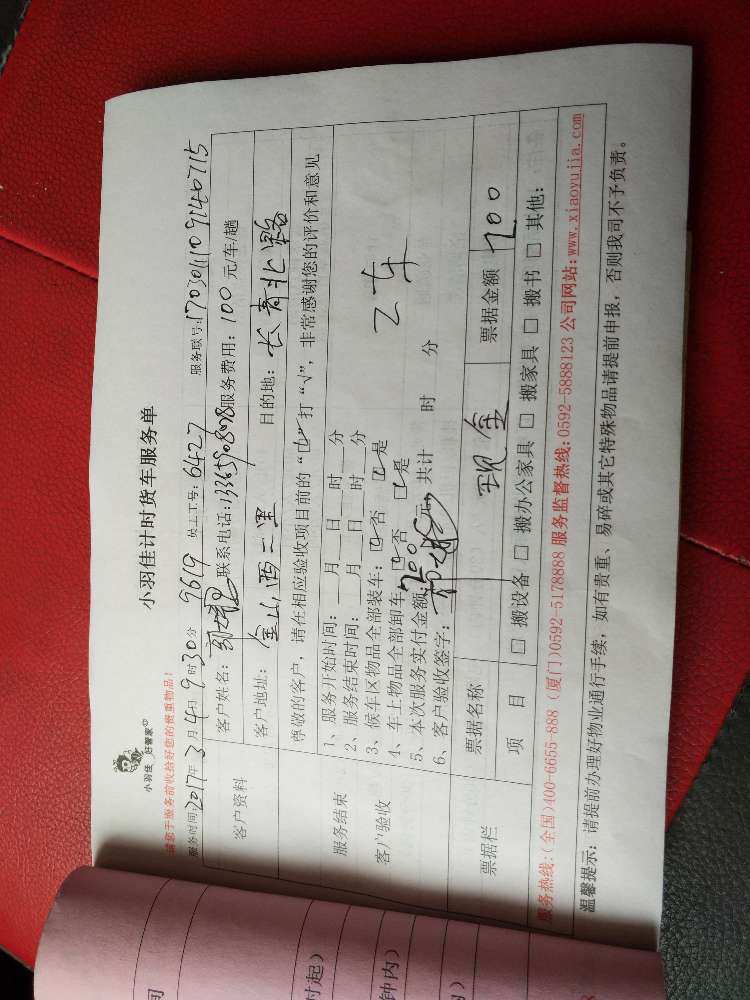 小羽佳计时货车服务单
小羽佳 好管家
请您于服务前收拾好您的贵重物品!
服务时间:2017年3月4日9时30分 9619 员工工号:6427 服务联号:170301109140715
客户资料
客户姓名: 联系电话:13365908 服务费用:100元/车/趟
客户地址: 金山西二里 目的地: 长青北路
尊敬的客户,请在相应验收项目前的“□”打“√”,非常感谢您的评价和意见
服务结束
客户验收
1、服务开始时间: 月 日 时 分
2、服务结束时间: 月 日 时 分 2车
3、候车区物品全部装车:☑否 ☑是
4、车上物品全部卸车:☑否 ☑是
5、本次服务实付金额:200元,共计 时 分
6、客户验收签字:
票据栏
票据名称 现金 票据金额 200
项 目 □ 搬设备 □ 搬办公家具 □ 搬家具 □ 搬书 □ 其他:
服务热线:(全国)400-6655-888 (厦门)0592-5178888 服务监督热线:0592-5888123 公司网站:www.xiaoyujia.com
温馨提示: 请提前办理好物业通行手续, 如有贵重、易碎或其它特殊物品请提前申报, 否则我司不予负责。
间
付起)
钟内)